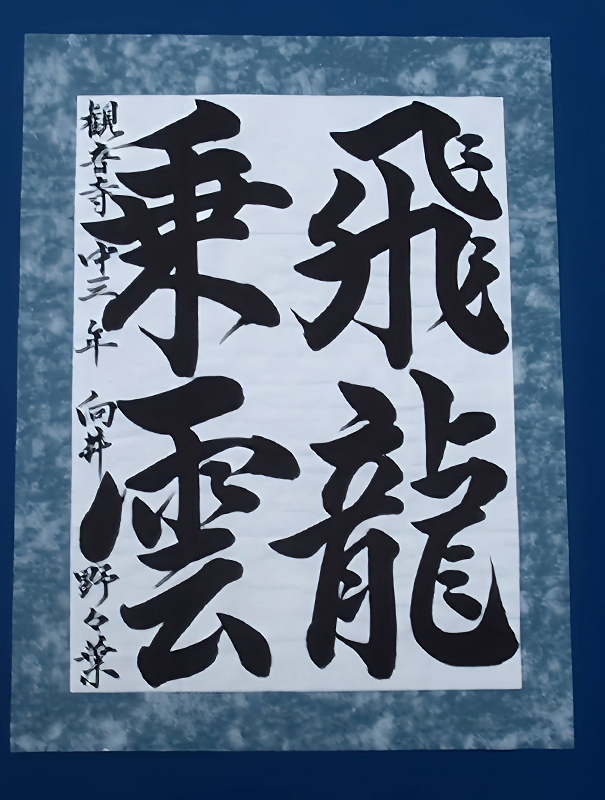 飛龍
乗雲
観音寺中三年 向井野々葉